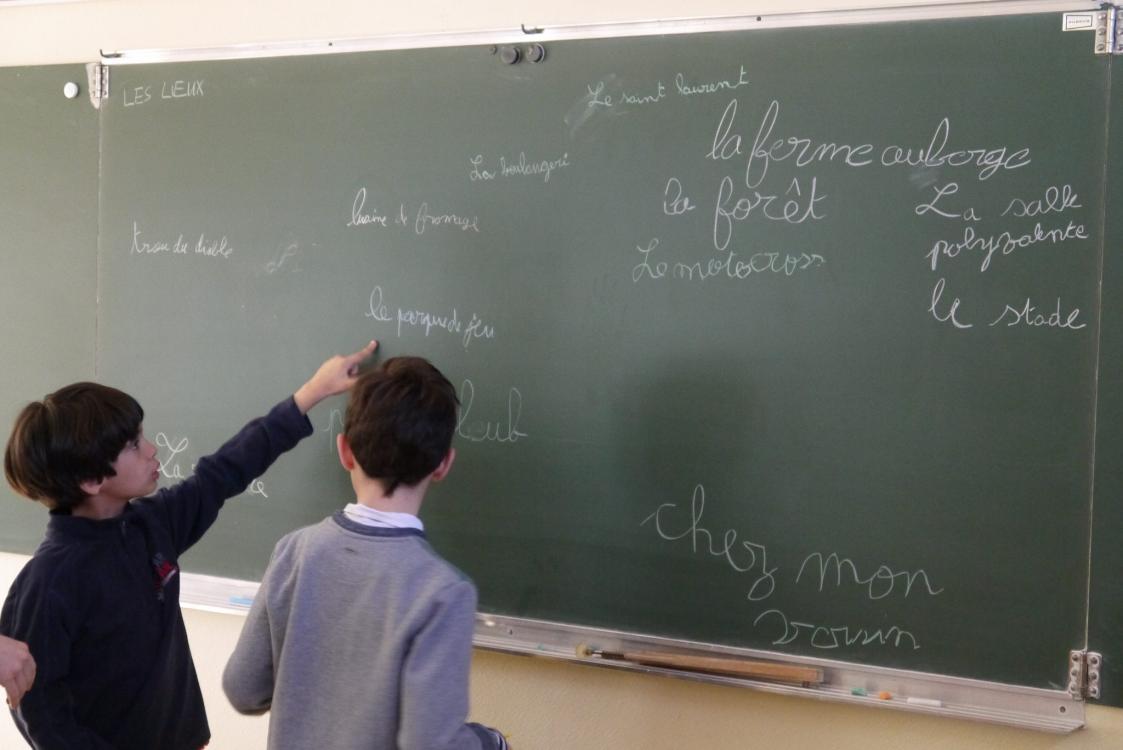 LES LIEUX
Le saint laurent
la ferme auberge
La boulangerie
la forêt
La salle
polyvalente
luaine de fromage
trou du diable
Le motocross
le parque de jeu
le stade
La
chez mon
voisin